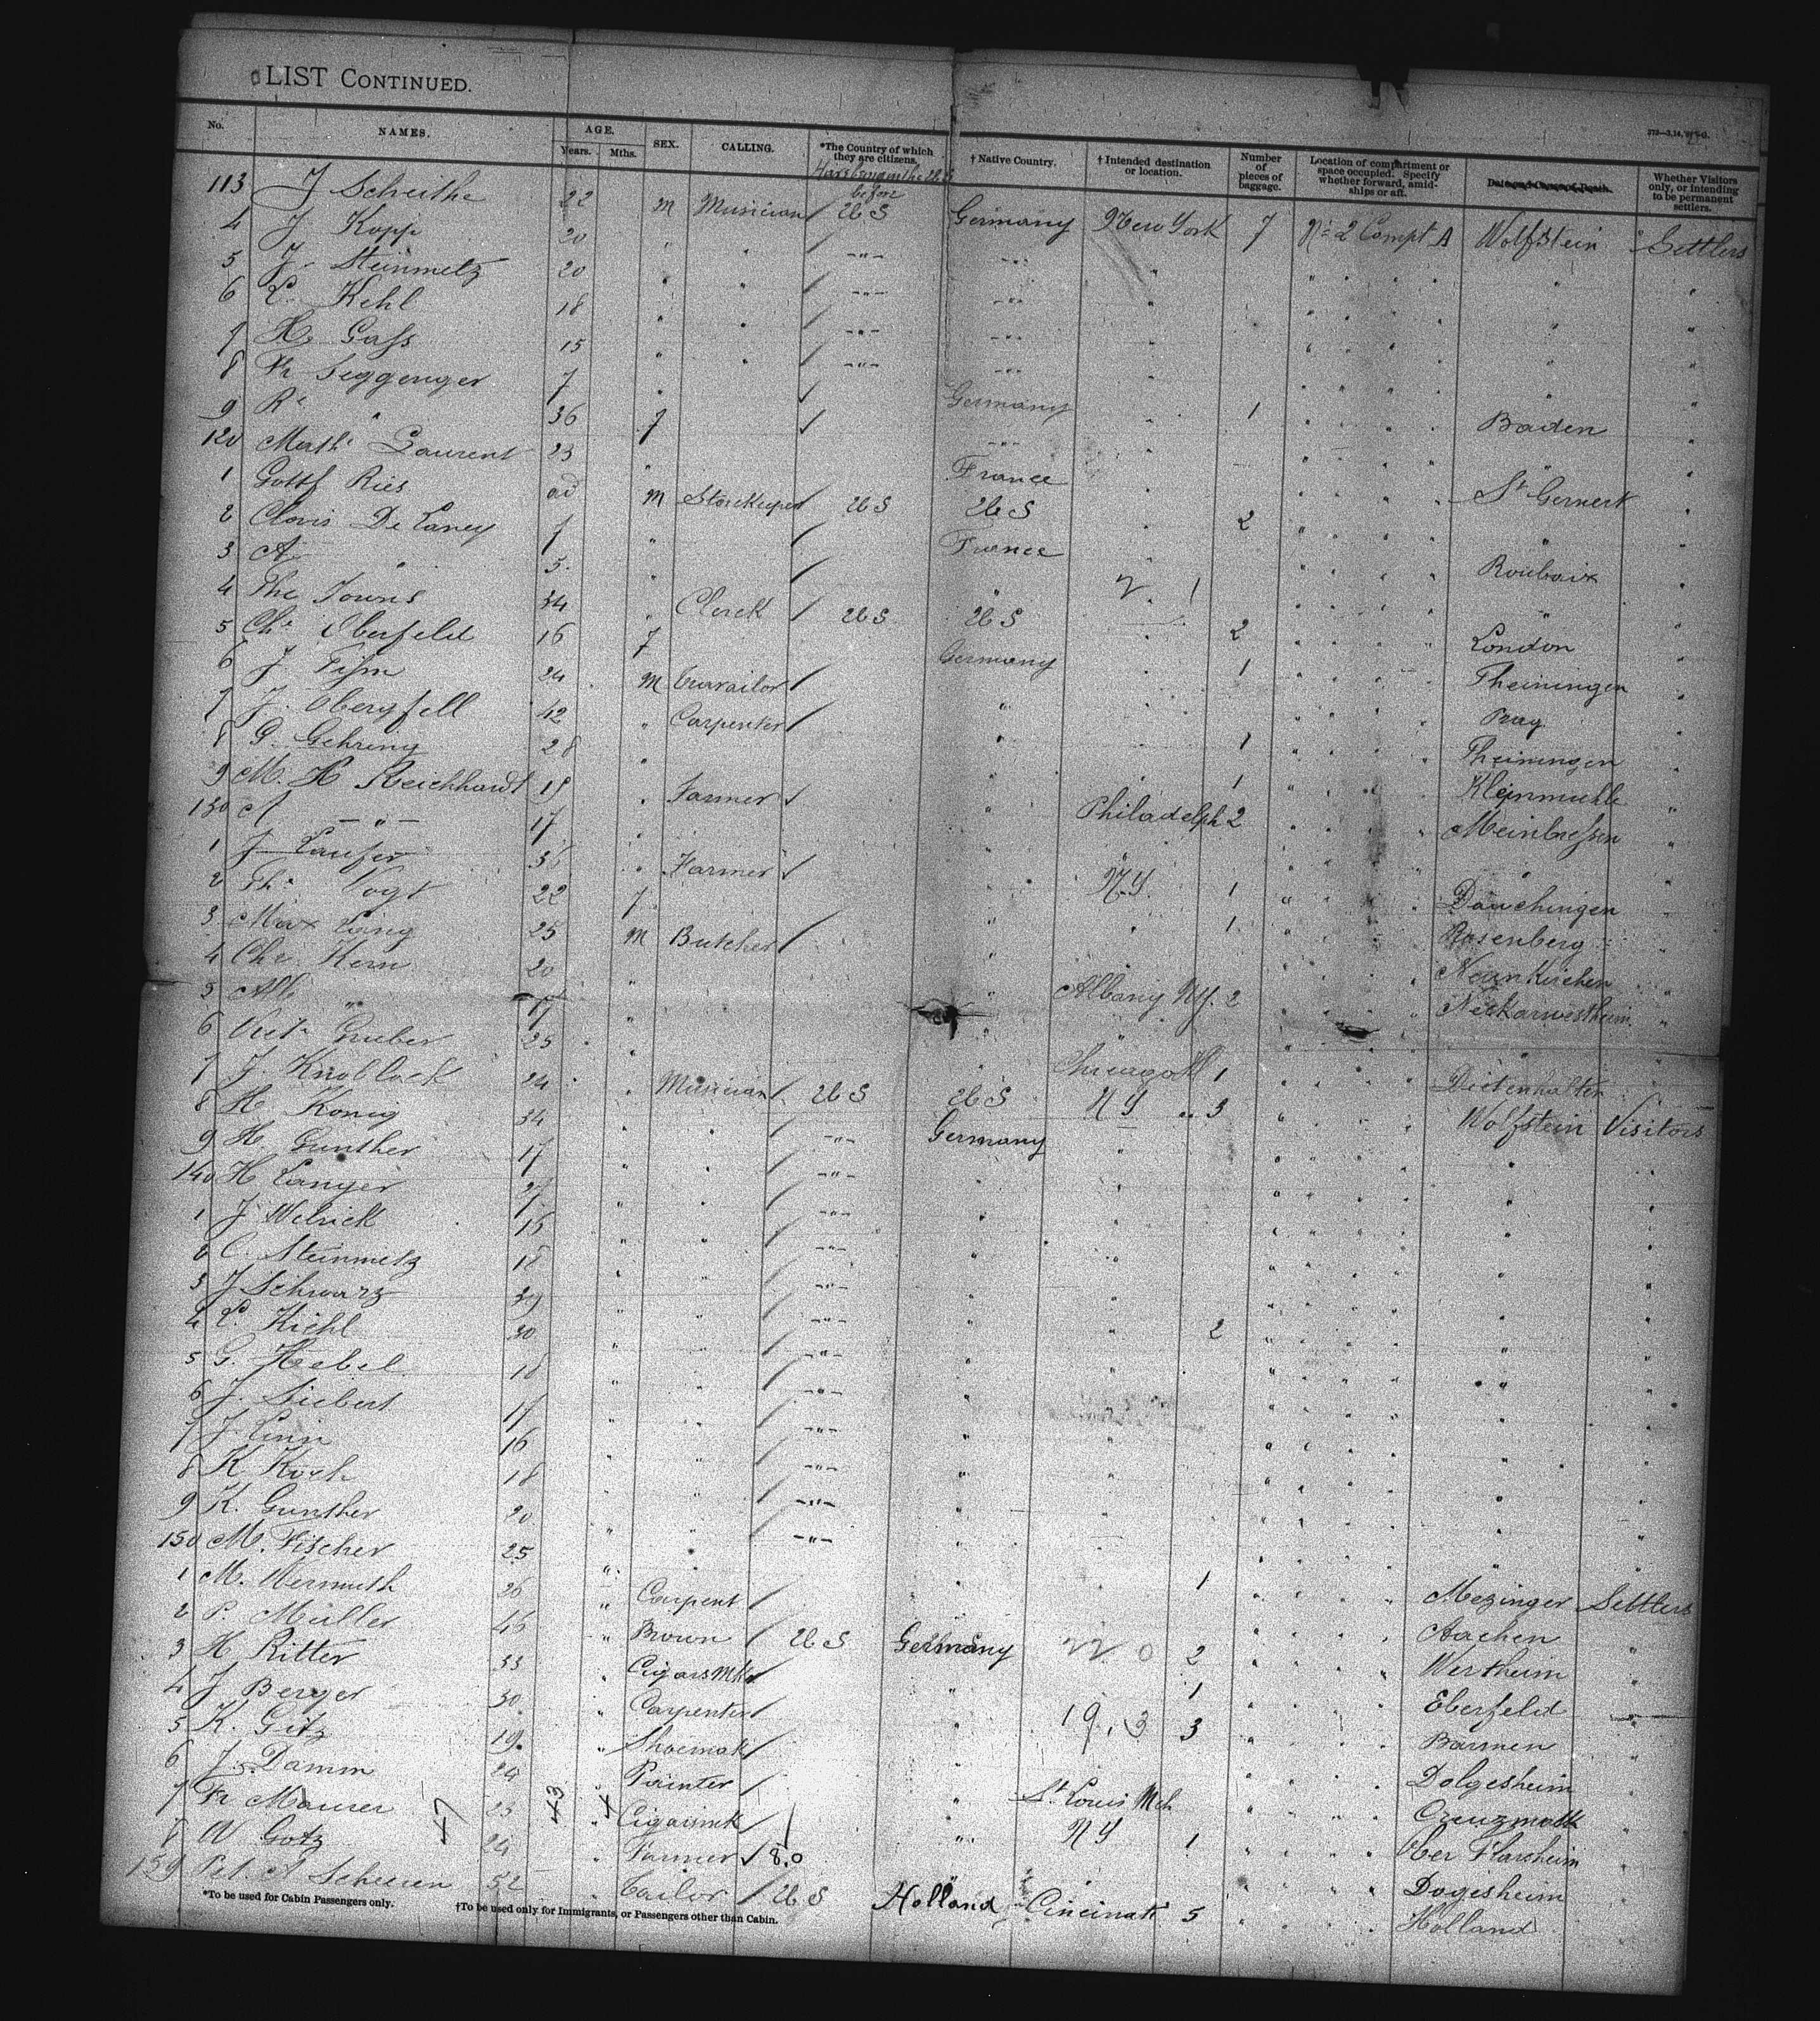 LIST CONTINUED.
373—3,14,'91 5-G.
No. NAMES. AGE. Years. Mths. SEX. CALLING. *The Country of which they are citizens. † Native Country. † Intended destination or location. Number of pieces of baggage. Location of compartment or space occupied. Specify whether forward, amid-ships or aft. Date and Cause of Death. Whether Visitors only, or intending to be permanent settlers.
before
113 J Scheithe 22 M Musician / U S Germany New York 7 No 2 Compt A Wolfstein Settlers
4 J Kopp 20 " " / -"- -"- " " " " " "
5 J. Steinmetz 20 " " / -"- -"- " " " " " "
6 L. Kehl 18 " " / -"- -"- " " " " " "
7 H. Gass 15 " " / -"- -"- " " " " " "
8 Fr Seggenger 7 " / Germany " 1 " " " " Baden "
9 R. " 36 f / -"- " " " " " " "
120 Math. Laurent 23 " France " " " " " St Gernert "
1 Gottf Ries ad M Storekeeper / U S U S " 2 " " " " " "
2 Clovis De Laney 7 " / France " " " " Roubaix "
3 A. " 5 " / " " " " " " "
4 The Towns 34 " Clerck / U S U S " 2 " " " " London "
5 Chr Oberfeld 16 f Germany " 1 " " " " Theiningen "
6 J. 24 M / " " " " " " Prag "
7 J. Obergfell 42 " Carpenter / " " 1 " " " " Theiningen "
8 G. Gehring 28 " " " 1 " " " " Kleinmuhle "
9 M. H Reichhardt 18 " Farmer / " Philadelph 2 " " " " Meinbressen "
130 A -"- 17 " " " " " " " "
1 J Laufer 36 " Farmer / " N.Y. 1 " " " " Dauchingen "
2 Th. Vogt 22 f " " 1 " " " " Rosenberg "
3 Max Lang 25 M Butcher / " " " " " " Neunkirchen "
4 Chr. Kern 20 " " Albany NY. 2 " " " " Neckarwestheim "
5 Alb " 17 " " " " " " " " "
6 Vict. Gruber 25 " " Chicago Ill 1 " " " " "
7 J. Knoblock 24 " Musician / U S U S N Y " 3 " " " " Wolfstein Visitors
8 H. Konig 34 " " / -"- Germany " " " " " " "
9 H Gunther 17 " " / -"- " " " " " " "
140 H Langer 27 " " / -"- " " " " " " "
1 J Welrick 15 " " / -"- " " " " " " "
2 C. Steinmetz 18 " " / -"- " " " " " " "
3 J Schwarz 39 " " / -"- " " 2 " " " " " "
4 L. Kiehl 30 " " / -"- " " " " " " "
5 G. Hebel 18 " " / -"- " " " " " " "
6 J. Siebert 17 " " / -"- " " " " " " "
7 J. Linn 16 " " / -"- " " " " " " "
8 K Koch 18 " " / -"- " " " " " " "
9 K. Gunther 20 " " / -"- " " " " " " "
150 M. Fischer 25 " " " 1 " " " " Mezinger Settlers
1 M. Wermuth 26 " Carpent / " " " " " " Aachen "
2 P. Müller 45 " Brown / U S Germany 2 " " " " Wertheim "
3 H. Ritter 33 " Cigarsmker / " 1 " " " " Eberfeld "
4 J Berger 30 " Carpenter / " 3 " " " " Barmen "
5 K. Gitz 19 " Shoemak / " " " " " Dolgesheim "
6 J. Damm 24 " Painter / " St Louis Mch " " " " Creuzmatt "
7 Fr Maurer 23 " Cigarmk / " N Y 1 " " " " Ober Flarsheim "
8 W Gotz 24 " Farmer / 8.0 " " " " " " Dogesheim "
159 Pet. A Scheeren 52 " Tailor / U S Holland Cincinati 5 " " " " Holland "
47 43 4
*To be used for Cabin Passengers only.
†To be used only for Immigrants, or Passengers other than Cabin.